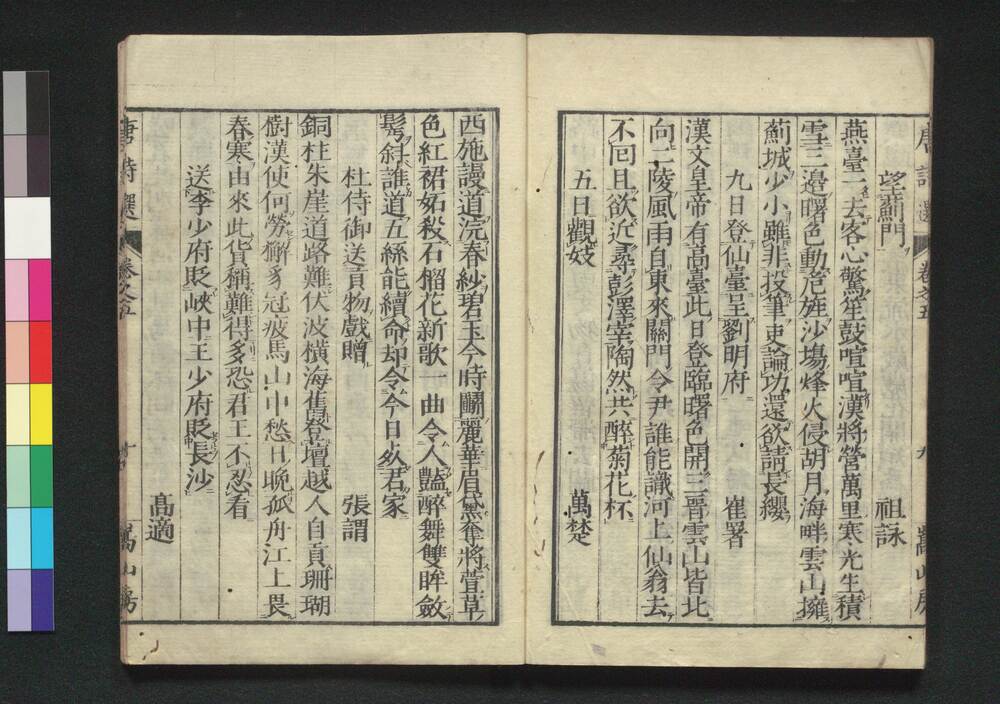 望薊門　祖詠
燕臺一去客心驚笙鼓喧喧漢將營萬里寒光生積
雪三邊曙色動危旌沙塲烽火侵胡月海畔雲山擁
薊城少小雖非投筆吏論功還欲請長纓
九日登仙臺呈劉明府　崔署
漢文皇帝有高臺此日登臨曙色開三晉雲山皆北
向二陵風雨自東來關門令尹誰能識河上仙翁去
不回且欲近尋彭澤宰陶然共醉菊花杯
五日觀妓　萬楚
西施謾道浣春紗碧玉今時鬭麗華眉黛奪將萱草
色紅裙妬殺石榴花新歌一曲令人豔醉舞雙眸斂
鬢斜誰道五絲能續命却令今日死君家
杜侍御送貢物戲贈　張謂
銅柱朱崖道路難伏波橫海舊登壇越人自貢珊瑚
樹漢使何勞獬豸冠疲馬山中愁日晚孤舟江上畏
春寒由來此貨稱難得多恐君王不忍看
送李少府貶峽中王少府貶長沙
高適
唐詩選　卷之五　十　嵩山房